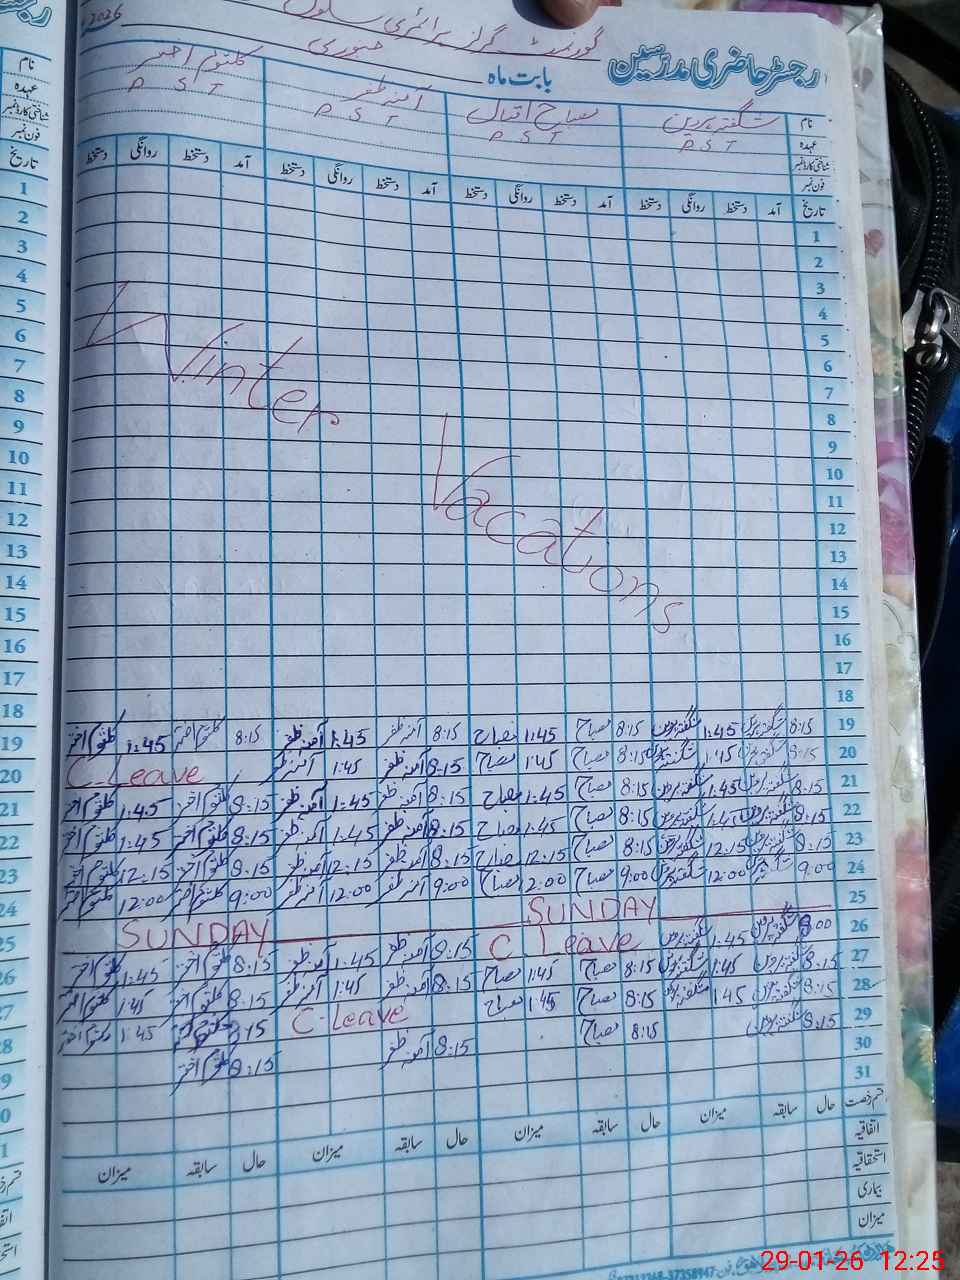 2026
گورنمنٹ گرلز پرائمری سکول
رجسٹر حاضری مدرسین بابت ماہ جنوری
نام شگفتہ پروین صباح اقبال آمنہ ظفر کلثوم اختر
عہدہ PST PST PST PST
شناختی کارڈ نمبر
فون نمبر
تاریخ آمد دستخط روانگی دستخط آمد دستخط روانگی دستخط آمد دستخط روانگی دستخط آمد دستخط روانگی دستخط
1
2
3
4
5
6
7
8
9
10
11
12
13
14
15
16
17
18
Winter
Vacations
19 8:15 شگفتہ پروین 1:45 شگفتہ پروین 8:15 صباح 1:45 صباح 8:15 آمنہ ظفر 1:45 آمنہ ظفر 8:15 کلثوم اختر 1:45 کلثوم اختر
20 8:15 شگفتہ پروین 1:45 شگفتہ پروین 8:15 صباح 1:45 صباح 8:15 آمنہ ظفر 1:45 آمنہ ظفر C. Leave
21 8:15 شگفتہ پروین 1:45 شگفتہ پروین 8:15 صباح 1:45 صباح 8:15 آمنہ ظفر 1:45 آمنہ ظفر 8:15 کلثوم اختر 1:45 کلثوم اختر
22 8:15 شگفتہ پروین 1:45 شگفتہ پروین 8:15 صباح 1:45 صباح 8:15 آمنہ ظفر 1:45 آمنہ ظفر 8:15 کلثوم اختر 1:45 کلثوم اختر
23 8:15 شگفتہ پروین 12:15 شگفتہ پروین 8:15 صباح 12:15 صباح 8:15 آمنہ ظفر 12:15 آمنہ ظفر 8:15 کلثوم اختر 12:15 کلثوم اختر
24 9:00 شگفتہ پروین 12:00 شگفتہ پروین 9:00 صباح 12:00 صباح 9:00 آمنہ ظفر 12:00 آمنہ ظفر 9:00 کلثوم اختر 12:00 کلثوم اختر
25 SUNDAY SUNDAY
26 شگفتہ پروین 1:45 شگفتہ پروین C. Leave 8:15 آمنہ ظفر 1:45 آمنہ ظفر 8:15 کلثوم اختر 1:45 کلثوم اختر
27 8:15 شگفتہ پروین 1:45 شگفتہ پروین 8:15 صباح 1:45 صباح 8:15 آمنہ ظفر 1:45 آمنہ ظفر 8:15 کلثوم اختر 1:45 کلثوم اختر
28 8:15 شگفتہ پروین 1:45 شگفتہ پروین 8:15 صباح 1:45 صباح C. Leave 8:15 کلثوم اختر 1:45 کلثوم اختر
29 8:15 شگفتہ پروین 8:15 صباح 8:15 آمنہ ظفر 8:15 کلثوم اختر
30
31
قسم رخصت حال سابقہ میزان حال سابقہ میزان حال سابقہ میزان حال سابقہ میزان
اتفاقیہ
استحقاقیہ
بیماری
میزان
37358947
29-01-26 12:25